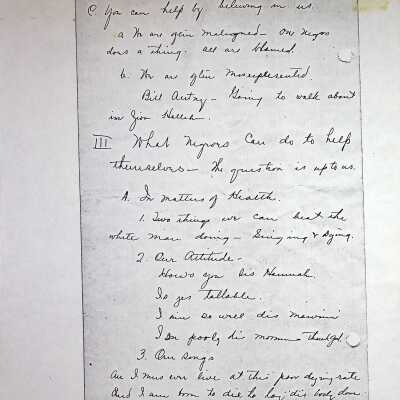 C. You can help by believing in us.
a. We are often maligned - One Negro
does a thing - all are blamed
b. We are often misrepresented.
Bill - Going to walk about
in Zion Halleh.
III What Negroes Can do to help
themselves - The question is up to us.
A. In matters of Health.
1. Two things we can beat the
white man doing - Singing & Dying.
2. Our Attitude -
How's you Sis Hannah.
Is yes tollable.
I ain so well dis mawnin
I Im pooly dis mornin thank God.
3. Our songs
And I mus ever live at this poor dying rate
And I am born to die to lay dis body down